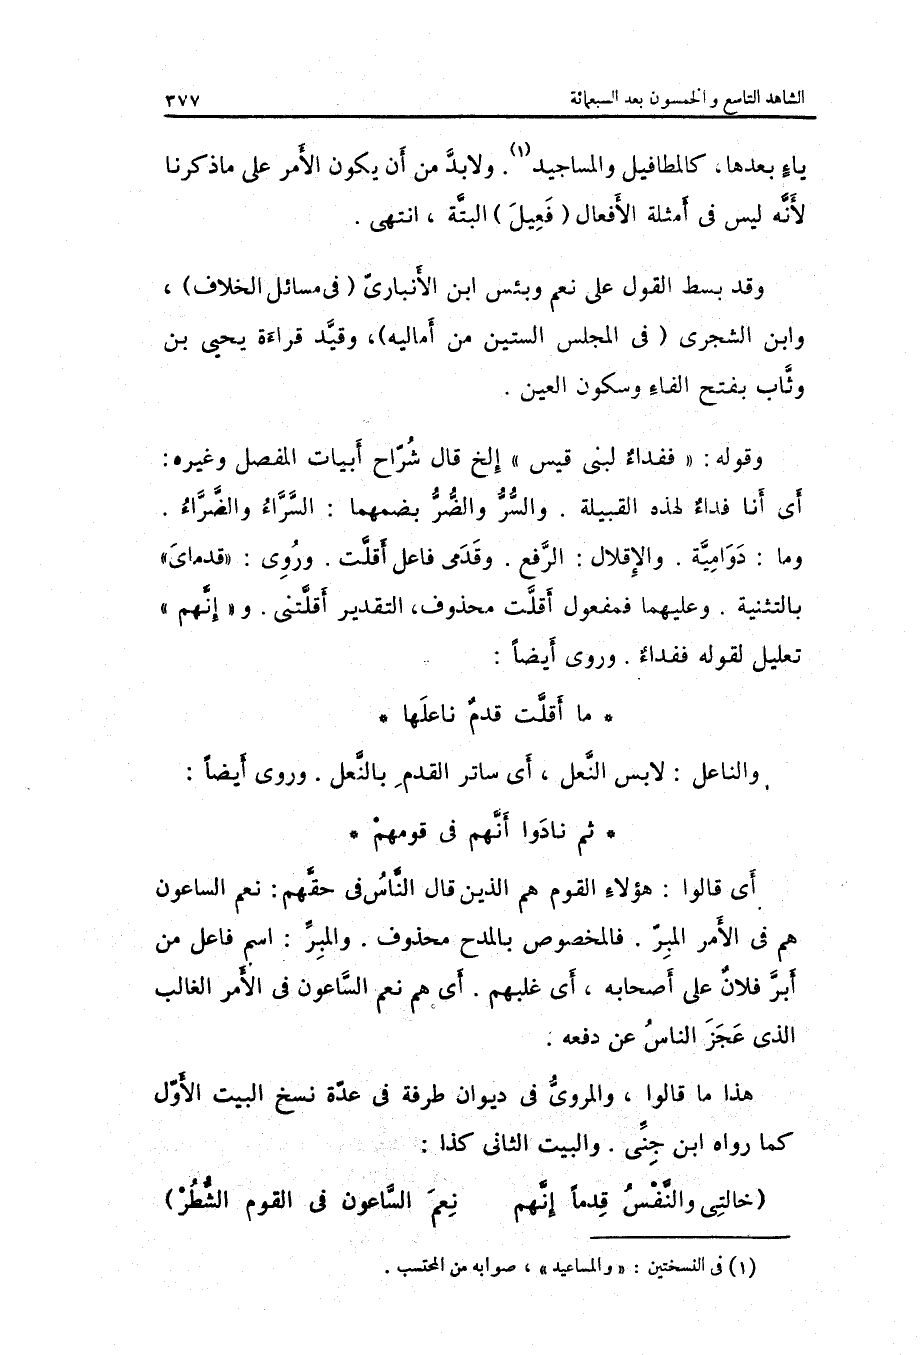 الشاهد التاسع والخمسون بعد السبعمائة ٣٧٧
ياءٍ بعدها، كالمطافيل والمساجيد(١). ولابدَّ من أن يكون الأمر على ماذكرنا
لأنَّه ليس فى أمثلة الأفعال (فَعِيلَ) البتَّة ، انتهى .
وقد بسط القول على نعم وبئس ابن الأنبارىّ (فى مسائل الخلاف) ،
وابن الشجرى (فى المجلس الستين من أماليه)، وقيَّد قراءة يحيى بن
وثَّاب بفتح الفاء وسكون العين .
وقوله: « ففداءٌ لبنى قيس » إلخ قال شُرّاح أبيات المفصل وغيره:
أى أنا فداءٌ لهذه القبيلة . والسُّرُّ والضُّرُّ بضمهما : السَّرَّاءُ والضَّرَّاءُ .
وما : دَوَاميَّة . والإقلال : الرَّفع . وقَدَمى فاعل أقلَّت . ورُوِى : «قدماىَ»
بالتثنية . وعليهما فمفعول أقلَّت محذوف، التقدير أقلَّتنى . و« إنَّهم »
تعليل لقوله ففداءٌ . وروى أيضاً :
* ما أقلَّت قدمٌ ناعلَها *
والناعل : لابس النَّعل ، أى ساتر القدمِ بالنَّعل . وروى أيضاً :
* ثم نادَوا أنَّهم فى قومهمْ *
أى قالوا : هؤلاء القوم هم الذين قال النَّاسُ فى حقَّهم : نعم الساعون
هم فى الأمر المبِرّ . فالمخصوص بالمدح محذوف . والمبِرُّ : اسم فاعل من
أبرَّ فلانٌ على أصحابه ، أى غلبهم . أى هم نعم السَّاعون فى الأمر الغالب
الذى عَجَزَ الناسُ عن دفعه .
هذا ما قالوا ، والمروىُّ فى ديوان طرفة فى عدّة نسخ البيت الأوّل
كما رواه ابن جِنِّى . والبيت الثانى كذا :
(خالتِى والنَّفْسُ قِدماً إنَّهم نِعمَ السَّاعون فى القوم الشُّطُرْ)
(١) فى النسختين : « والمساعيد » ، صوابه من المحتسب .